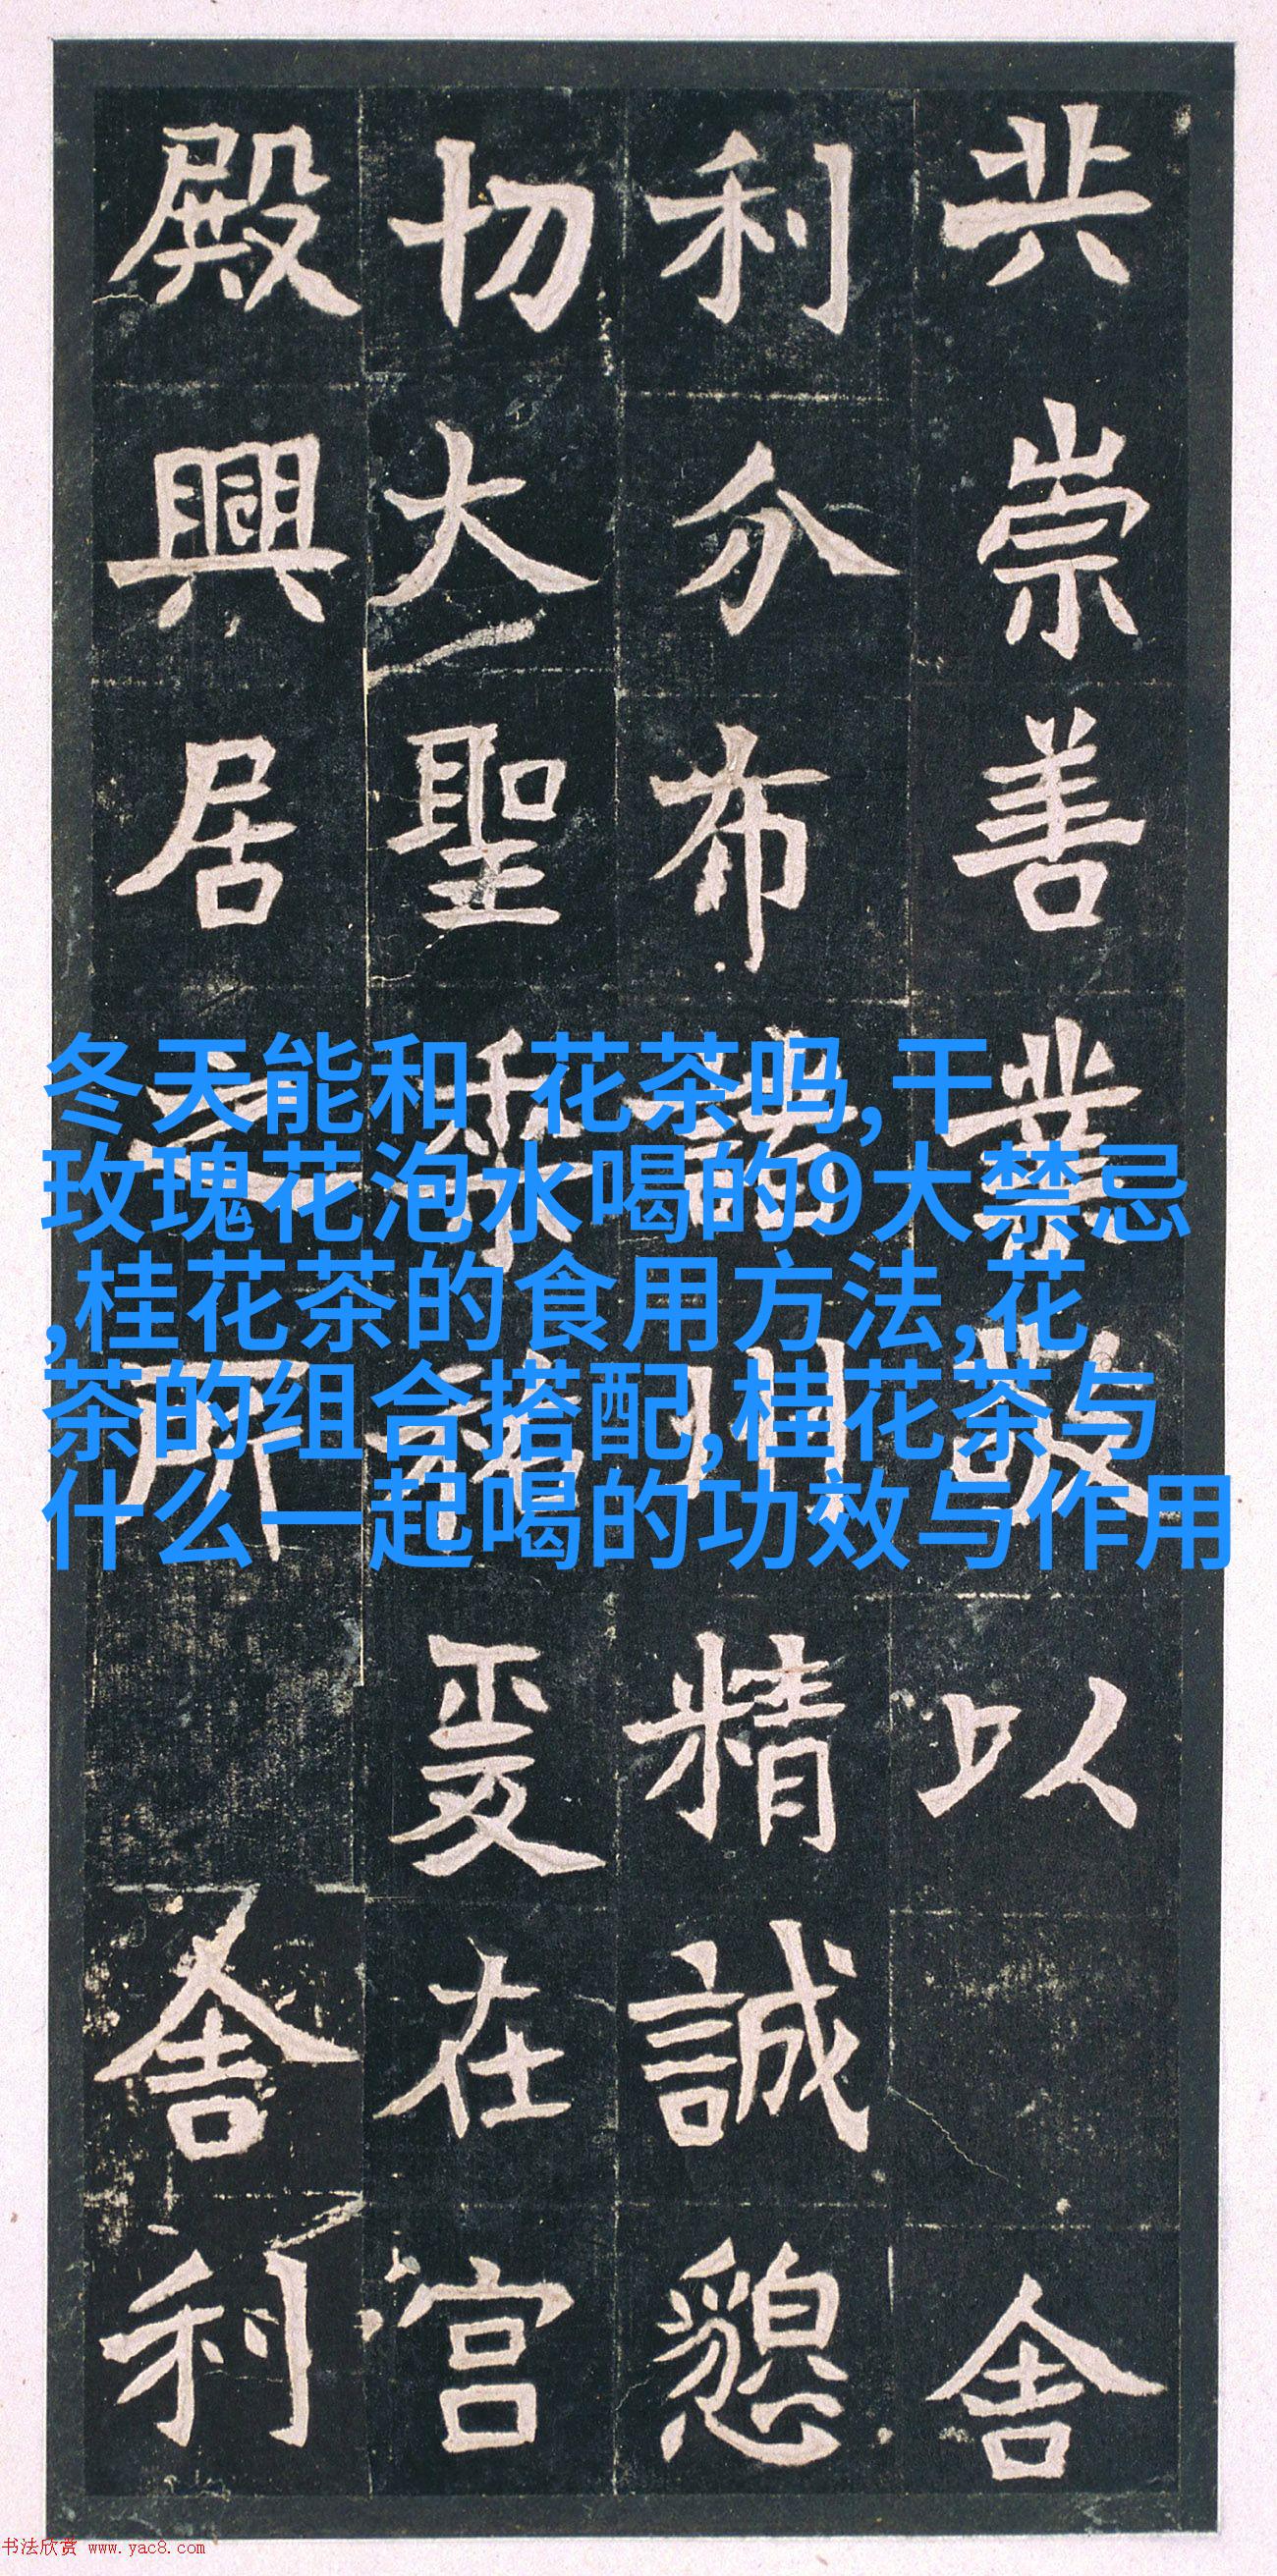 共崇善業敬以舍
利分布諸州精誠懇
切大聖垂慈爰在宫
殿興居之所舍利
冬天能和 花茶吗,干
玫瑰花泡水喝的9大禁忌
,桂花茶的食用方法,花
茶的组合搭配,桂花茶与
什么一起喝的功效与作用
书法欣赏 www.yac8.com